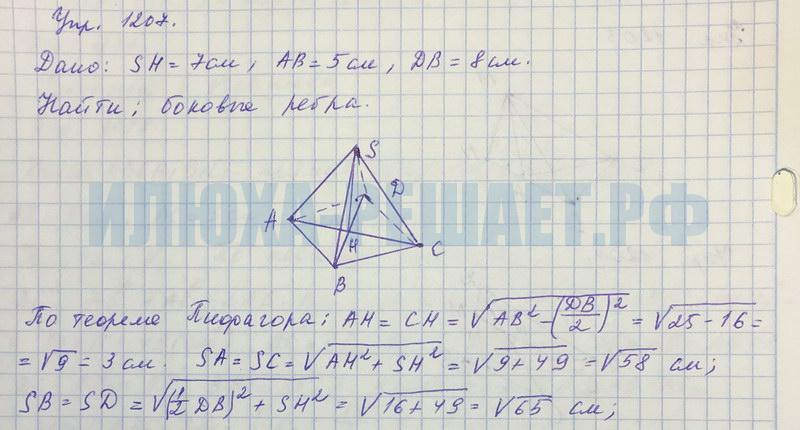 Упр. 1207.
Дано: SH = 7см, AB = 5см, DB = 8см.
Найти: боковые ребра.
S
ИЛЮХА-РЕШАЕТ.РФ
D
A
H
C
B
По теореме Пифагора: AH = CH = √(AB² - (DB/2)²) = √(25 - 16) =
= √9 = 3 см. SA = SC = √(AH² + SH²) = √(9 + 49) = √58 см;
SB = SD = √((1/2 DB)² + SH²) = √(16 + 49) = √65 см;